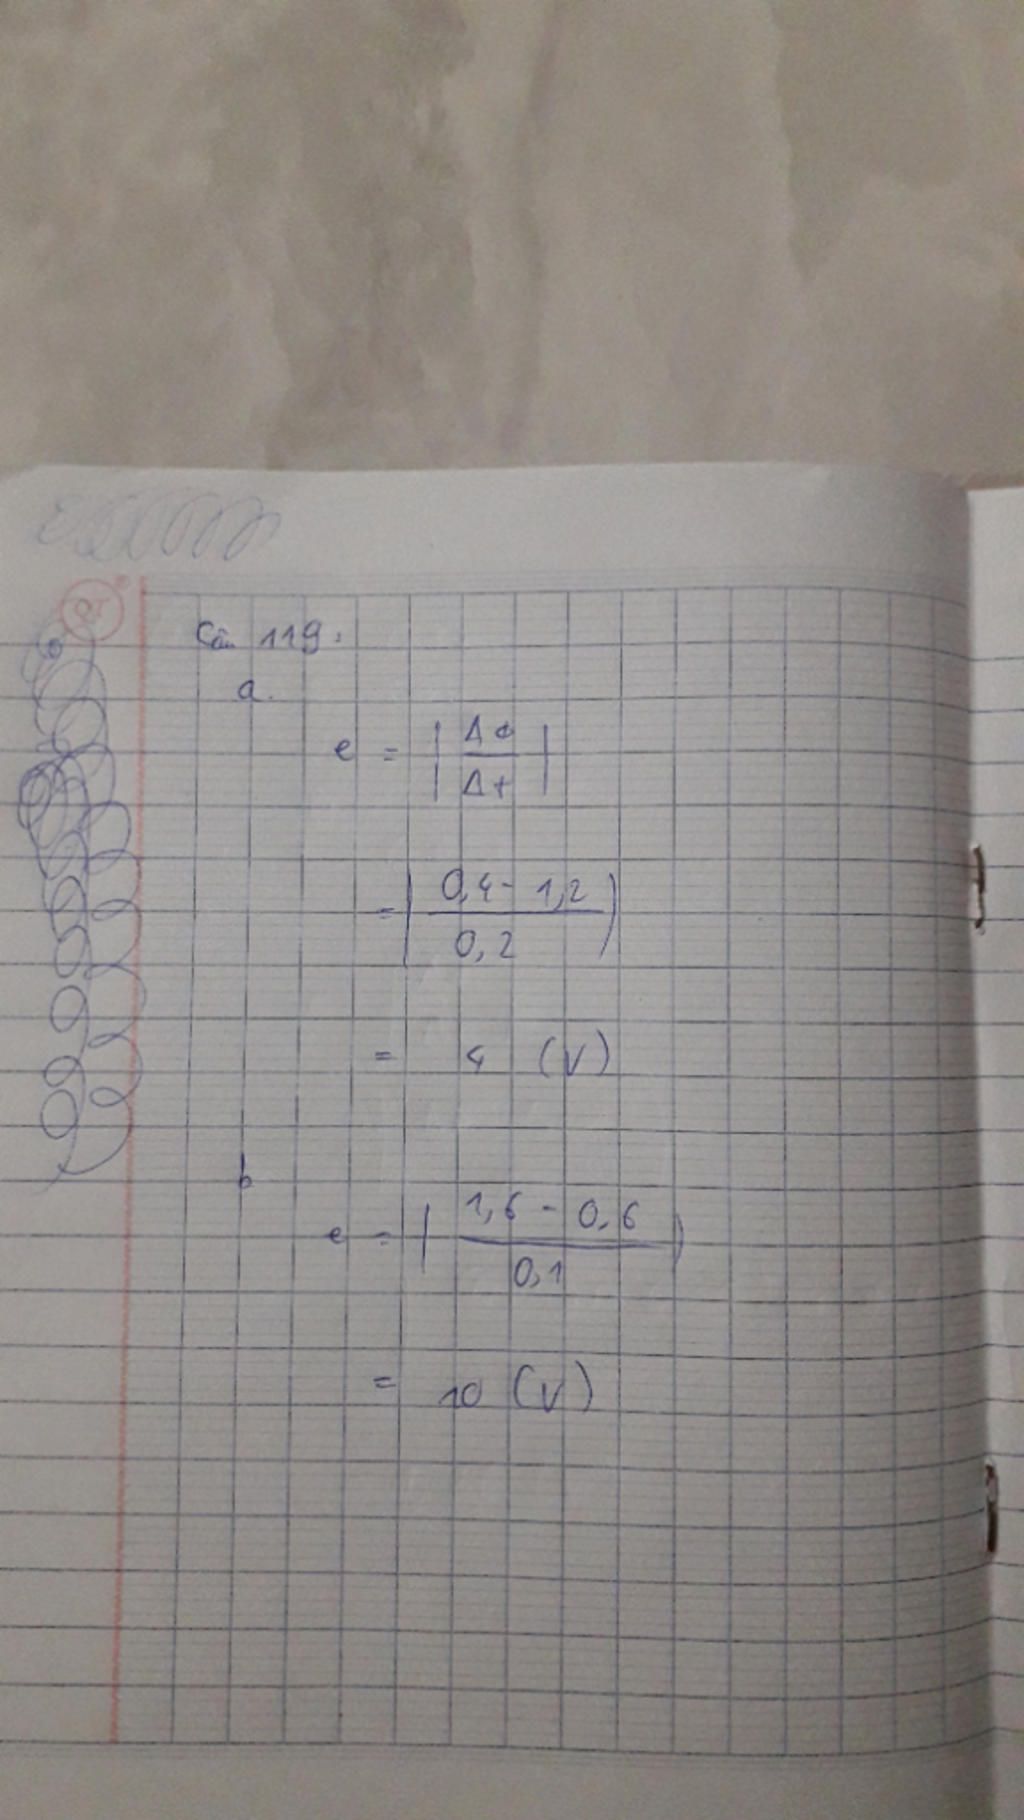 QT
Câu 119:
a.
e = | ΔΦ / Δt |
= | 0,4 - 1,2 / 0,2 |
= 4 (V)
b
e = | 1,6 - 0,6 / 0,1 |
= 10 (V)